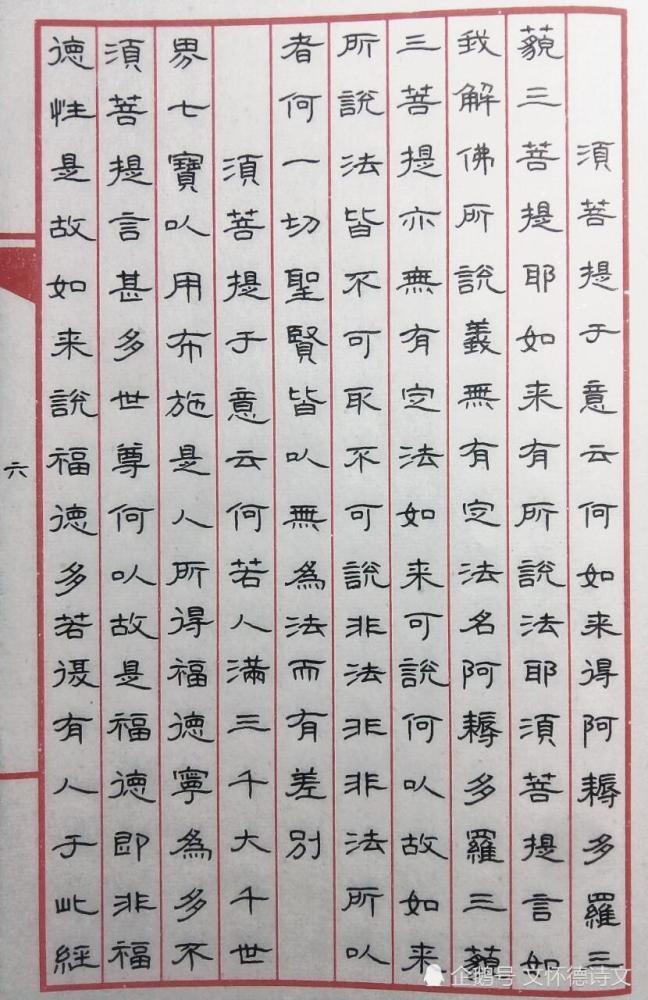 須菩提于意云何如来得阿耨多羅三
藐三菩提耶如来有所說法耶須菩提言如
我解佛所說義無有定法名阿耨多羅三藐
三菩提亦無有定法如来可說何以故如来
所說法皆不可取不可說非法非非法所以
者何一切聖賢皆以無為法而有差別
須菩提于意云何若人滿三千大千世
界七寶以用布施是人所得福德寧為多不
須菩提言甚多世尊何以故是福德即非福
德性是故如来說福德多若復有人于此經
六
企鹅号 文怀德诗文